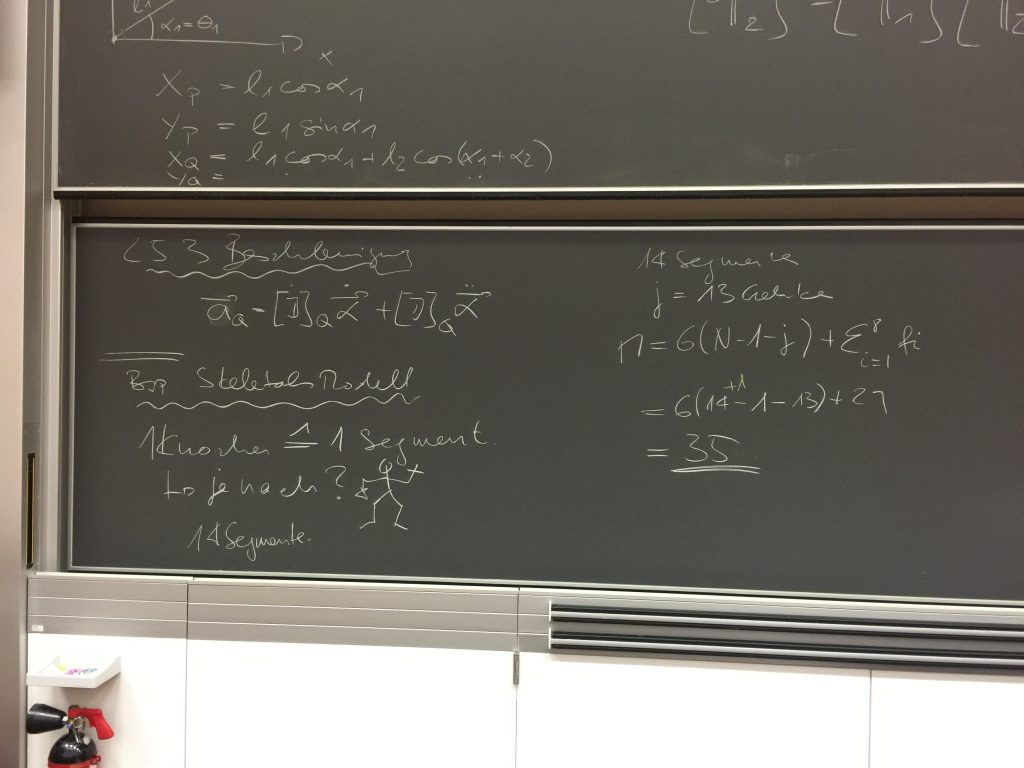 α1 = θ1
x
XP = l1 cos α1
YP = l1 sin α1
XQ = l1 cos α1 + l2 cos(α1 + α2)
YQ =
2.5.3 Beschleunigung
a⃗Q = [J̇]Q α⃗̇ + [J]Q α⃗̈
Bsp Skeletales Modell
1 Knochen ≙ 1 Segment
↳ je nach?
14 Segmente.
14 Segmente
j = 13 Gelenke
n = 6(N-1-j) + Σ⁸i=1 fi
= 6(14+1-1-13) + 29
= 35